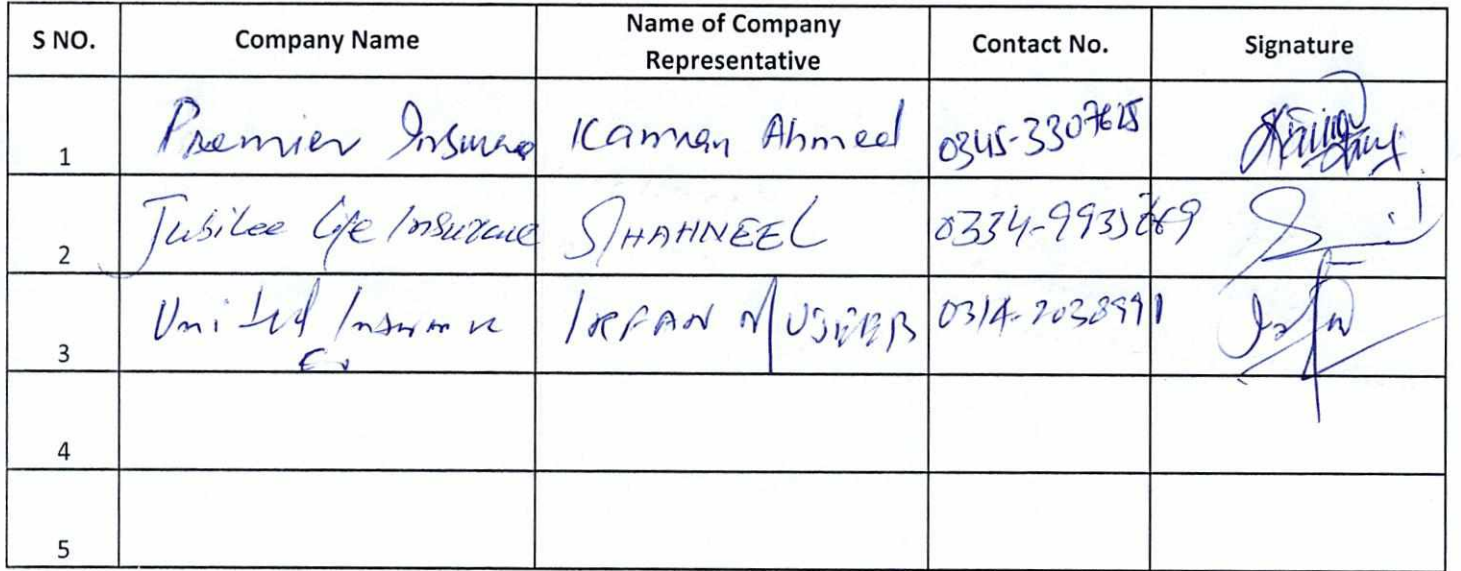 S NO. Company Name Name of Company Representative Contact No. Signature
1 Premier Insurance Kamran Ahmed 0345-3307625
2 Jubilee Life Insurance SHAHNEEL
3 United Insurance IRFAN
4
5